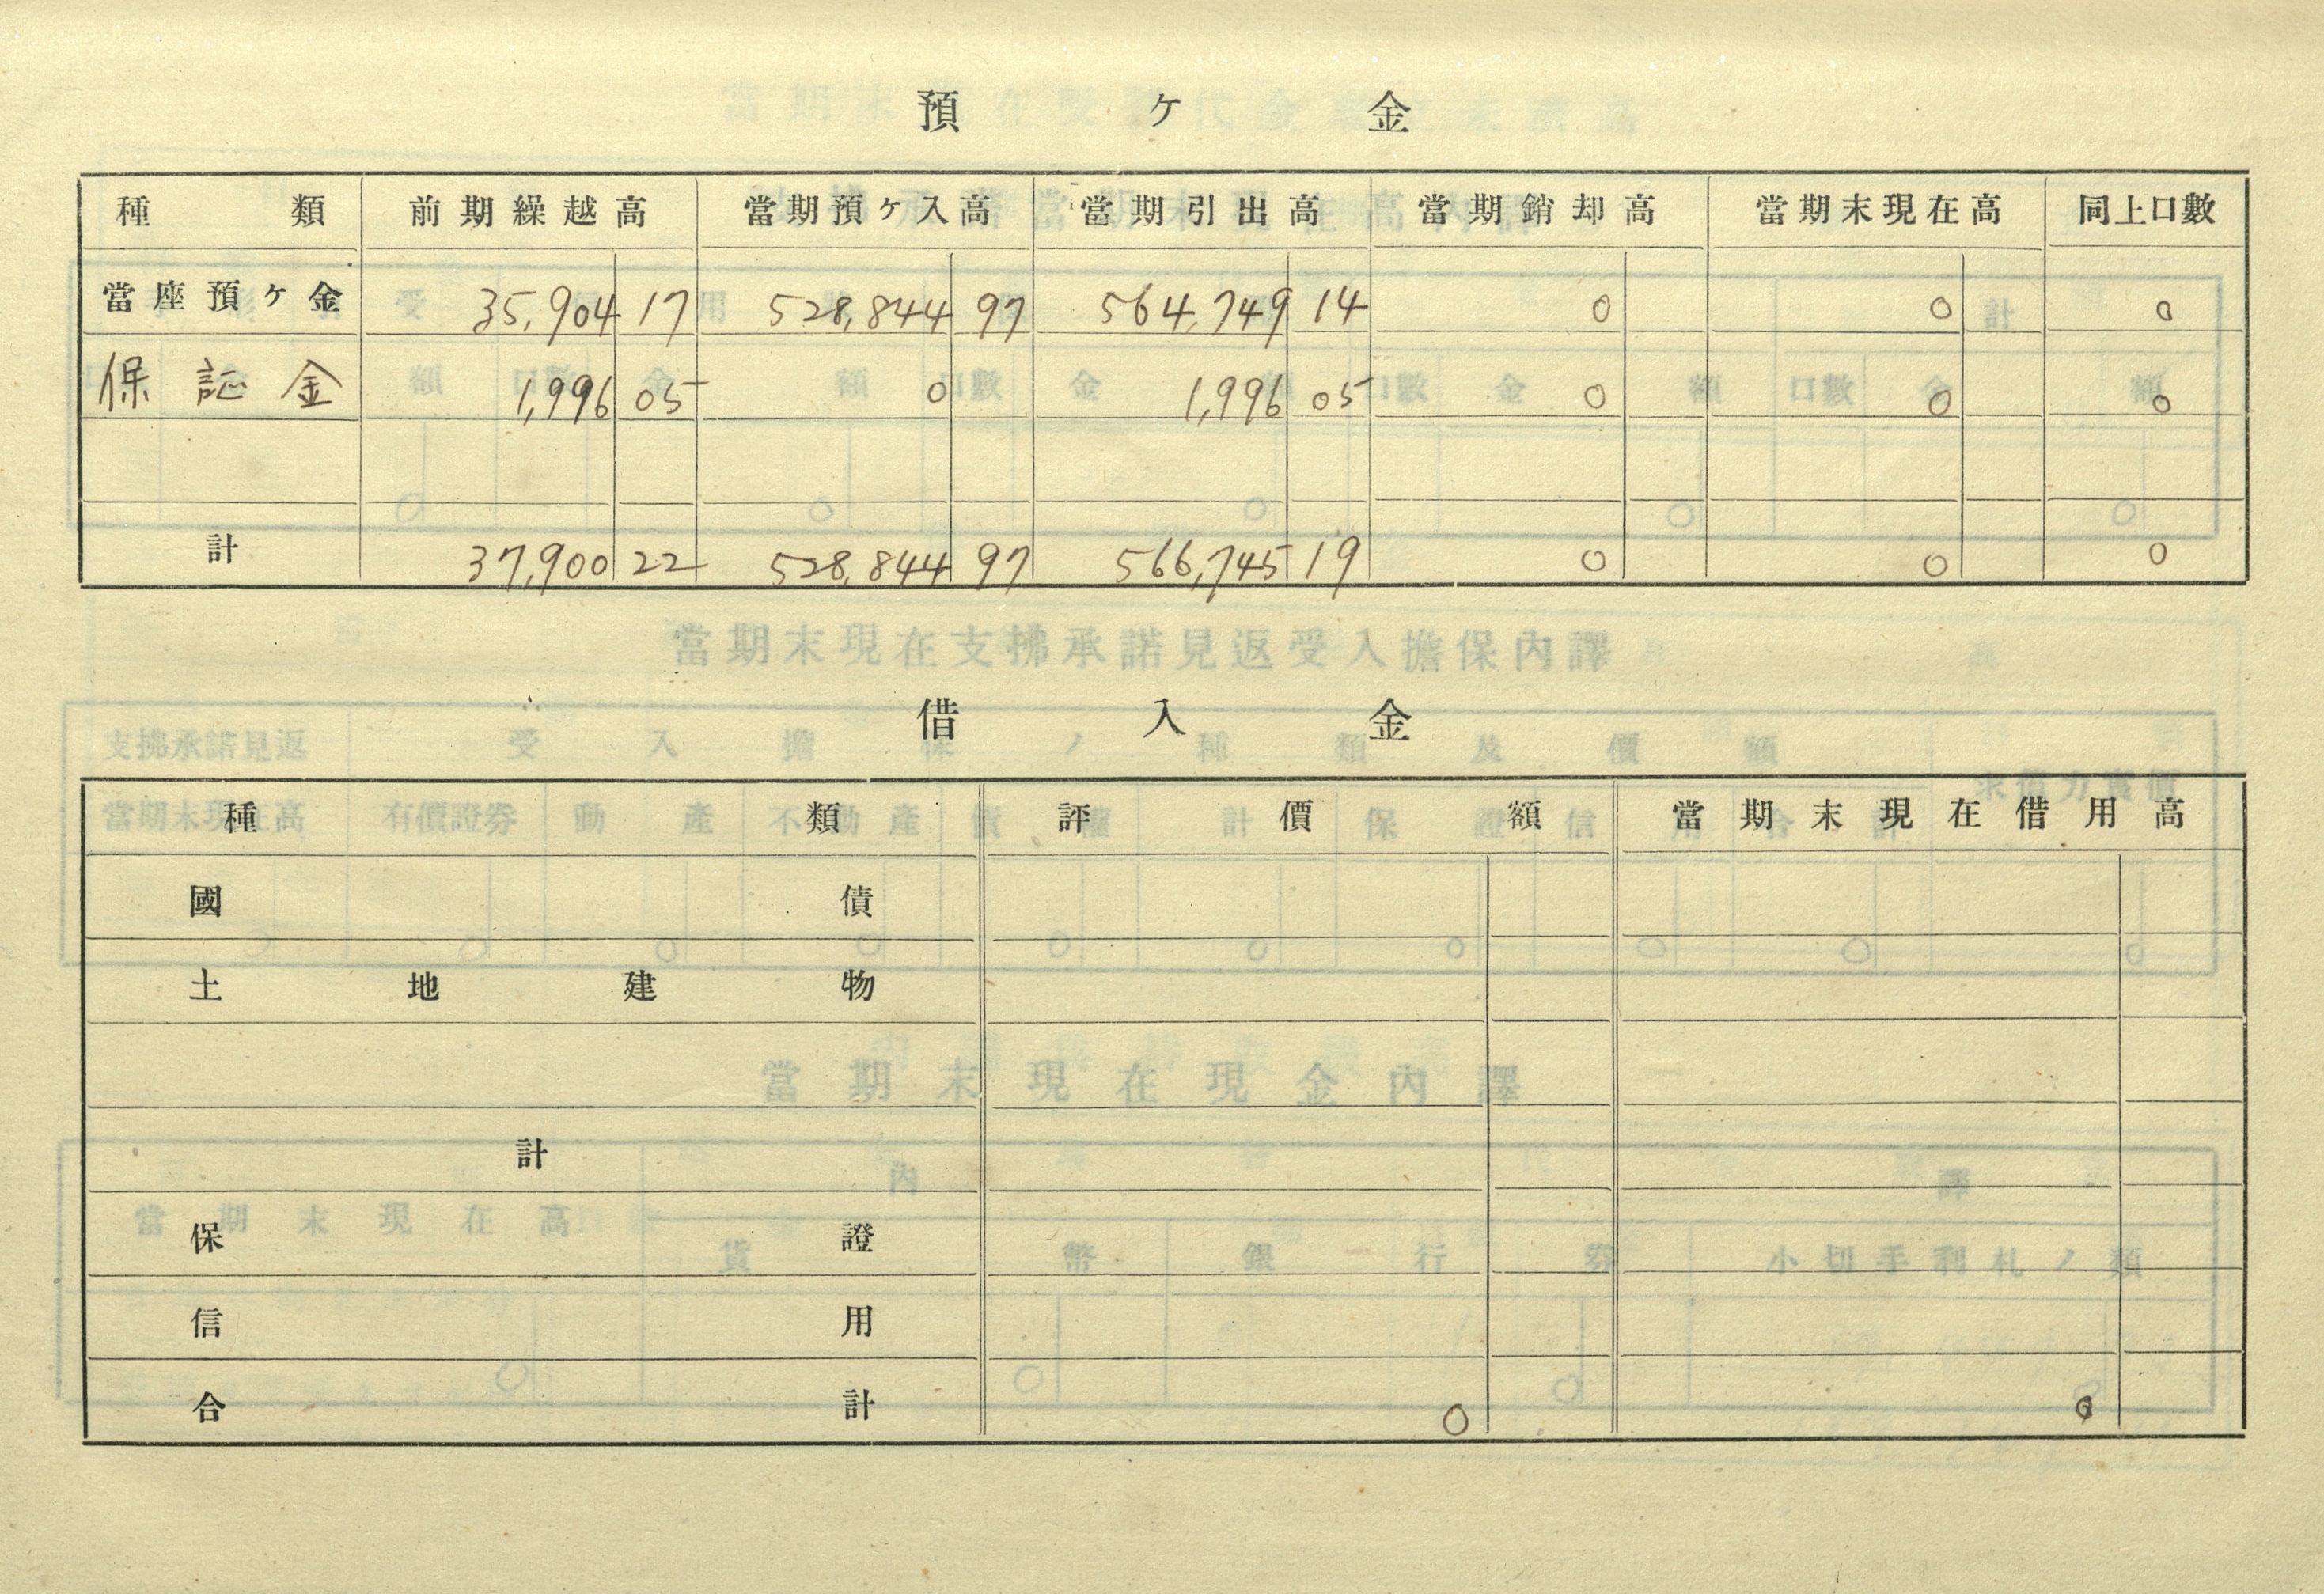 預ケ金
種類 前期繰越高 當期預ケ入高 當期引出高 當期銷却高 當期末現在高 同上口數
當座預ケ金 35,904 17 528,844 97 564,749 14 0 0 0
保証金 1,996 05 0 1,996 05 0 0 0
計 37,900 22 528,844 97 566,745 19 0 0 0
借入金
種類 評價額 當期末現在借用高
國債
土地建物
計
保證
信用
合計 0 0